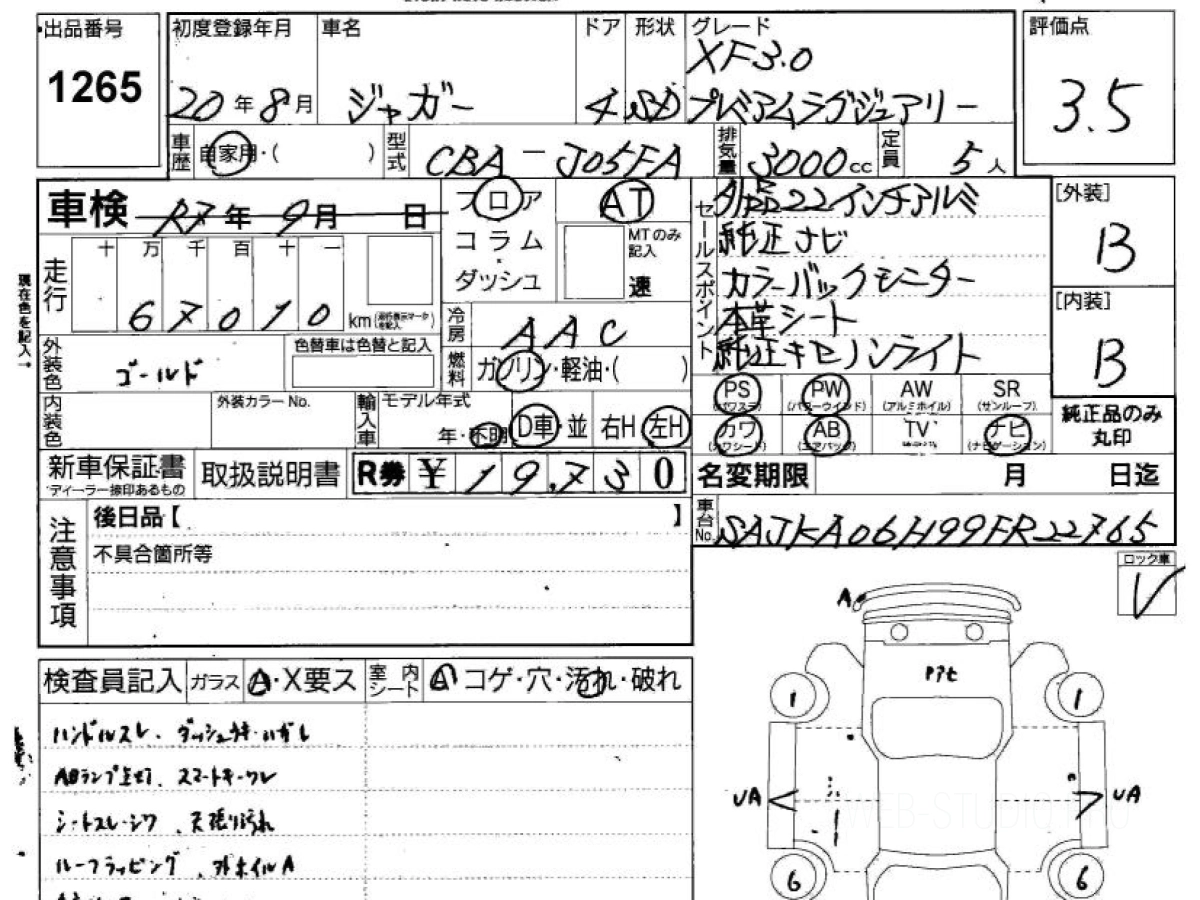 出品番号
1265
初度登録年月 車名 ドア 形状 グレード
20年8月 ジャガー 4 SD XF3.0
プレミアムラグジュアリー
評価点
3.5
車歴 自家用・( ) 型式 CBA-J05FA 排気量 3000cc 定員 5人
車検 R7年9月 日
フロア AT
コラム
ダッシュ
MTのみ記入
速
セールスポイント
外品22インチアルミ
純正ナビ
カラーバックモニター
本革シート
純正キセノンライト
[外装]
B
[内装]
B
現在色を記入→
走行 十 万 千 百 十 一
67010 km
冷房 AAC
燃料 ガソリン・軽油・( )
外装色 ゴールド 色替車は色替と記入
内装色 外装カラーNo. 輸入車 モデル年式
年・不明 D車・並 右H 左H
PS PW AW SR
(パワステ) (パワーウインド) (アルミホイル) (サンルーフ)
カワ AB TV ナビ
(カワシート) (エアバッグ) (ナビゲーション)
純正品のみ
丸印
新車保証書 取扱説明書 R券 ¥19,730
ディーラー捺印あるもの
名変期限 月 日迄
車台No. SAJKA06H99FR22765
注意事項
後日品【 】
不具合箇所等
ロック車
検査員記入 ガラス A・X要ス 室内シート A コゲ・穴・汚れ・破れ
ハンドルスレ、ダッシュウキ・ハガレ
シートスレ・シワ、天張り汚れ
ルーフラッピング、外ホイルA
A
1 1
UA UA
6 6
WEB-STUDIO PRO